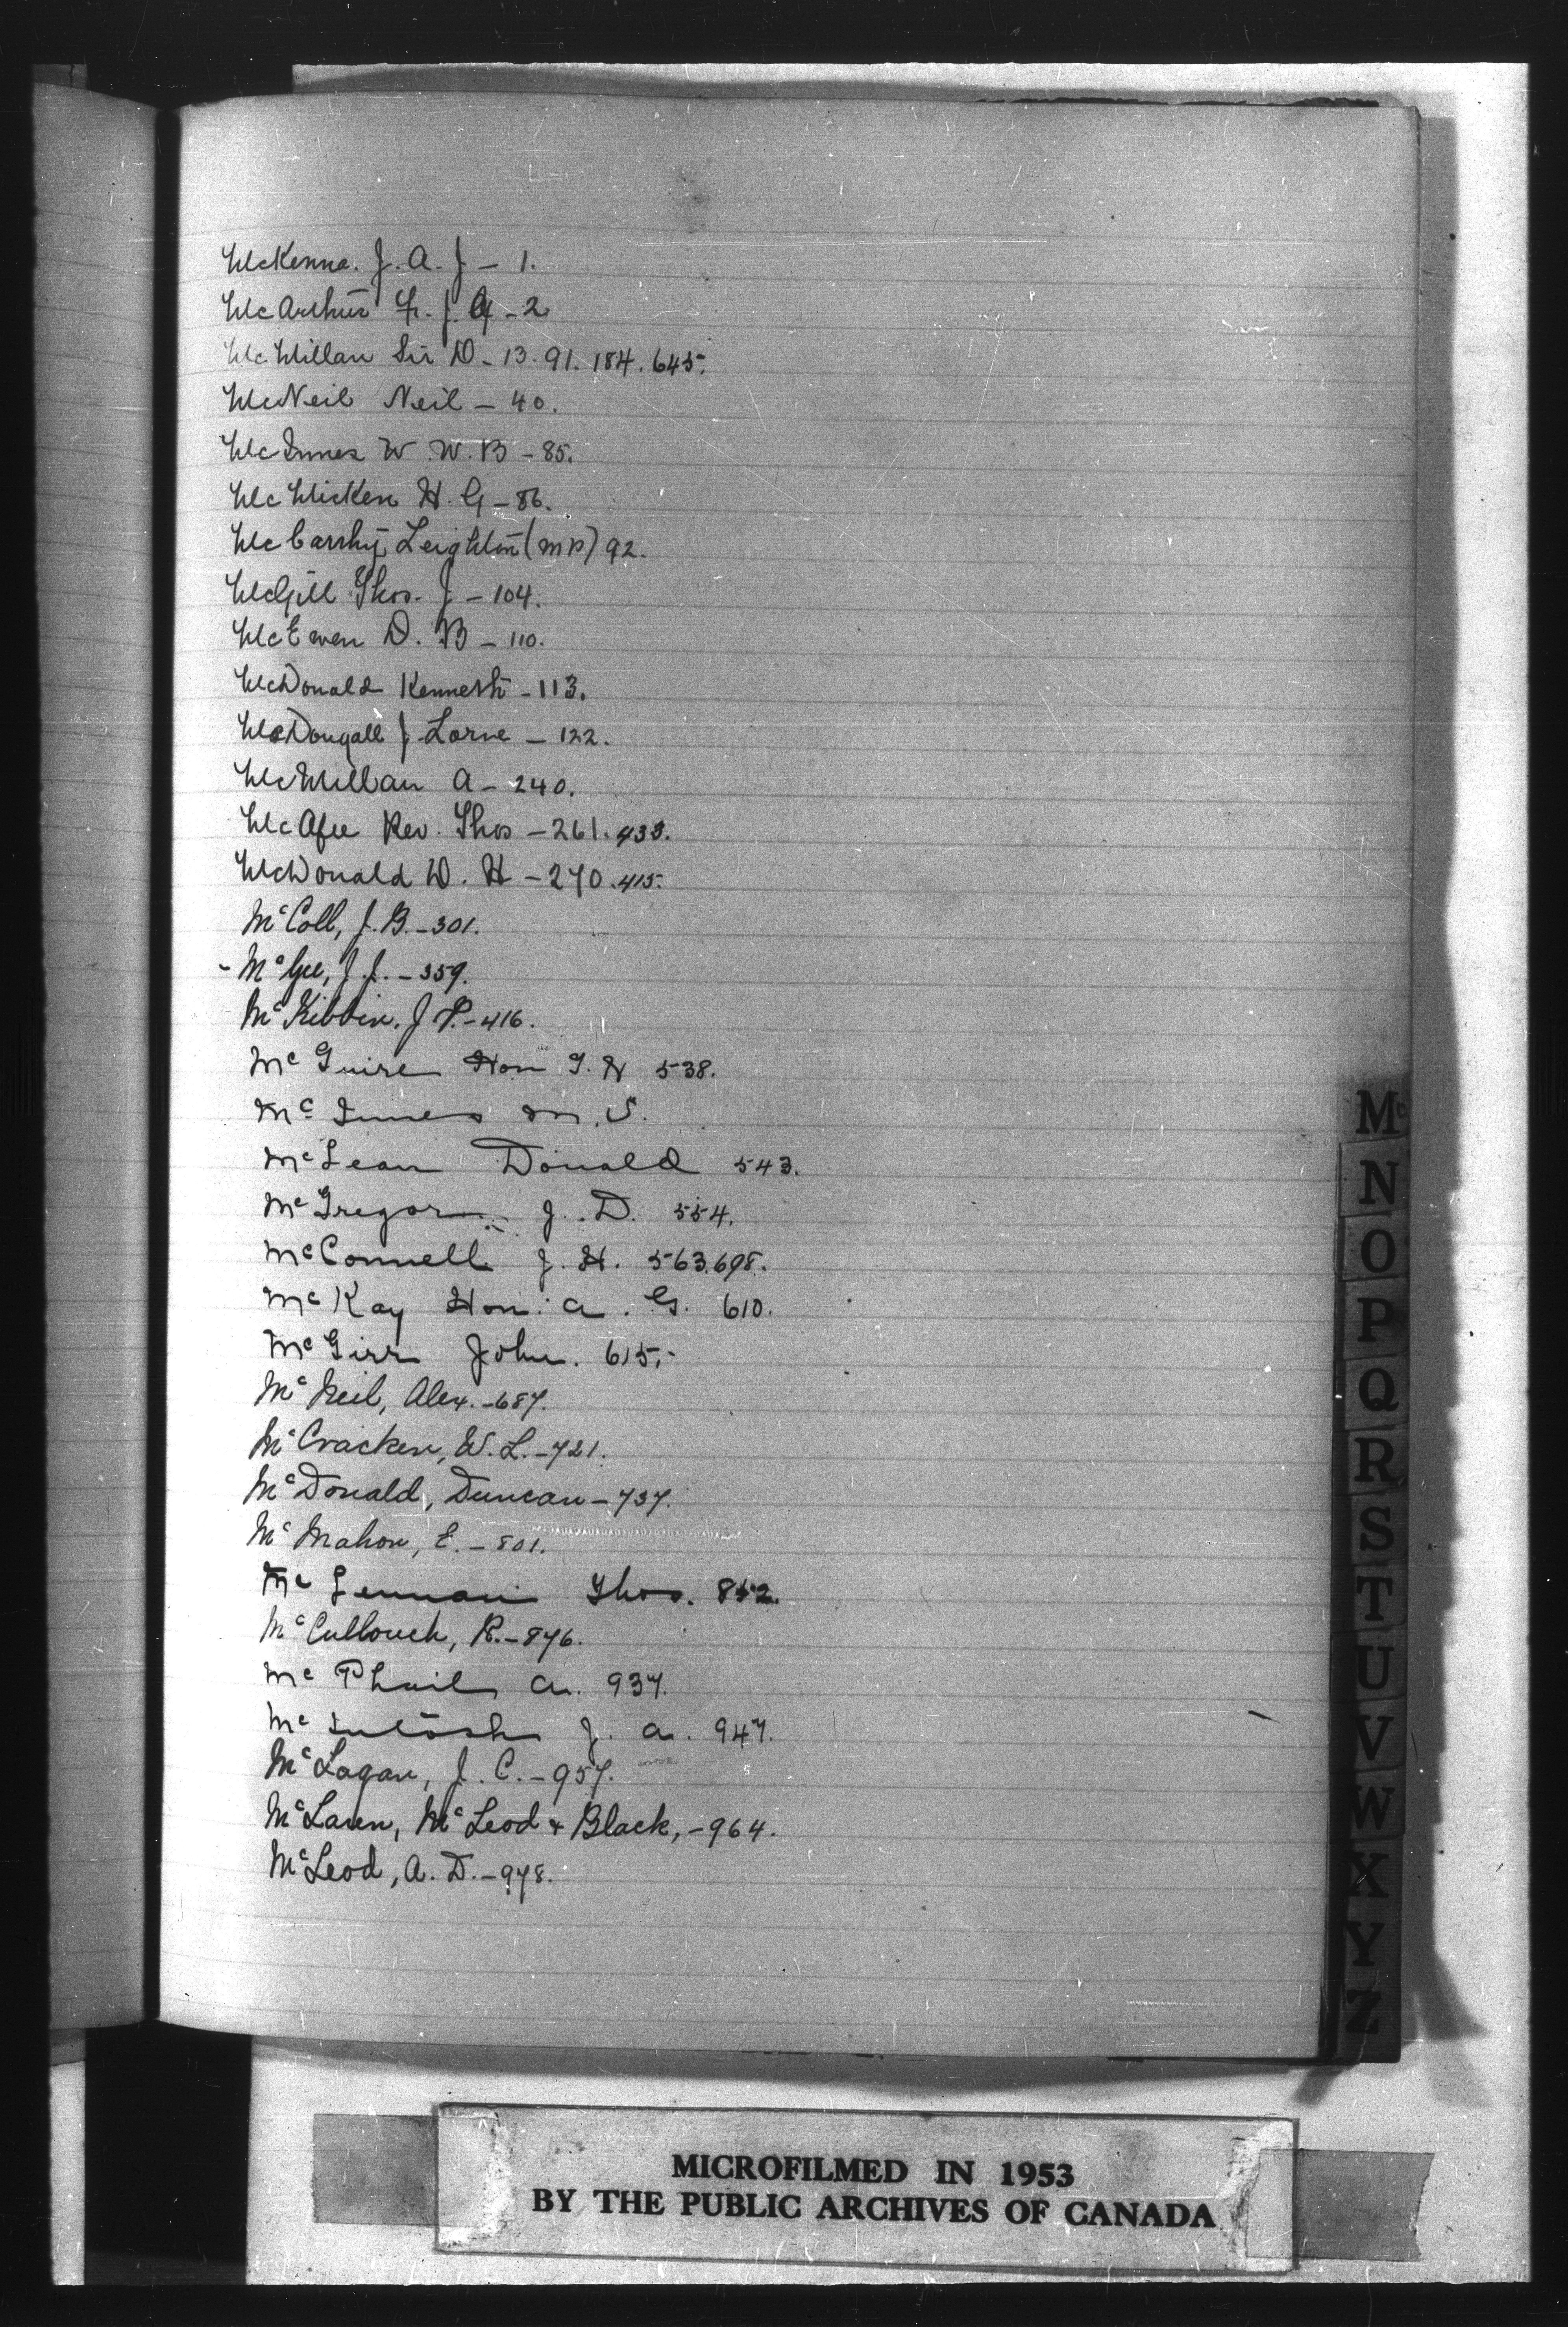 McKenna. J. A. J - 1.
McArthur J. A - 2
McMillan Sir D - 13. 91. 184. 645.
McNeil Neil - 40.
McInnes W. W. B - 85.
McMicken H. G - 86.
McCarthy Leighton (MP) 92.
McGill Thos. J - 104.
McEwen D. B - 110.
McDonald Kenneth - 113.
McDougall J. Lorne - 122.
McMillan A - 240.
McAfee Rev. Thos - 261. 433.
McDonald D. H - 270. 415.
McColl, J. B. - 301.
- McGee, J. J. - 359.
McKibbin. J. P. - 416.
McGuire Hon T. H 538.
McInnes M. S.
McLean Donald 543.
McGregor J. D. 554.
McConnell J. H. 563. 698.
McKay Hon: A. G. 610.
McGirr John. 615.
McNeil, Alex. - 687.
McCracken, W. L. - 721.
McDonald, Duncan - 737.
McMahon, E. - 801.
McLennan Thos.
McCullouch, R. - 876.
McPhail A. 937.
McIntosh J. A. 947.
McLagan, J. C. - 957.
McLaren, McLeod & Black, - 964.
McLeod, A. D. - 978.
Mc
N
O
P
Q
R
S
T
U
V
W
X
Y
Z
MICROFILMED IN 1953
BY THE PUBLIC ARCHIVES OF CANADA